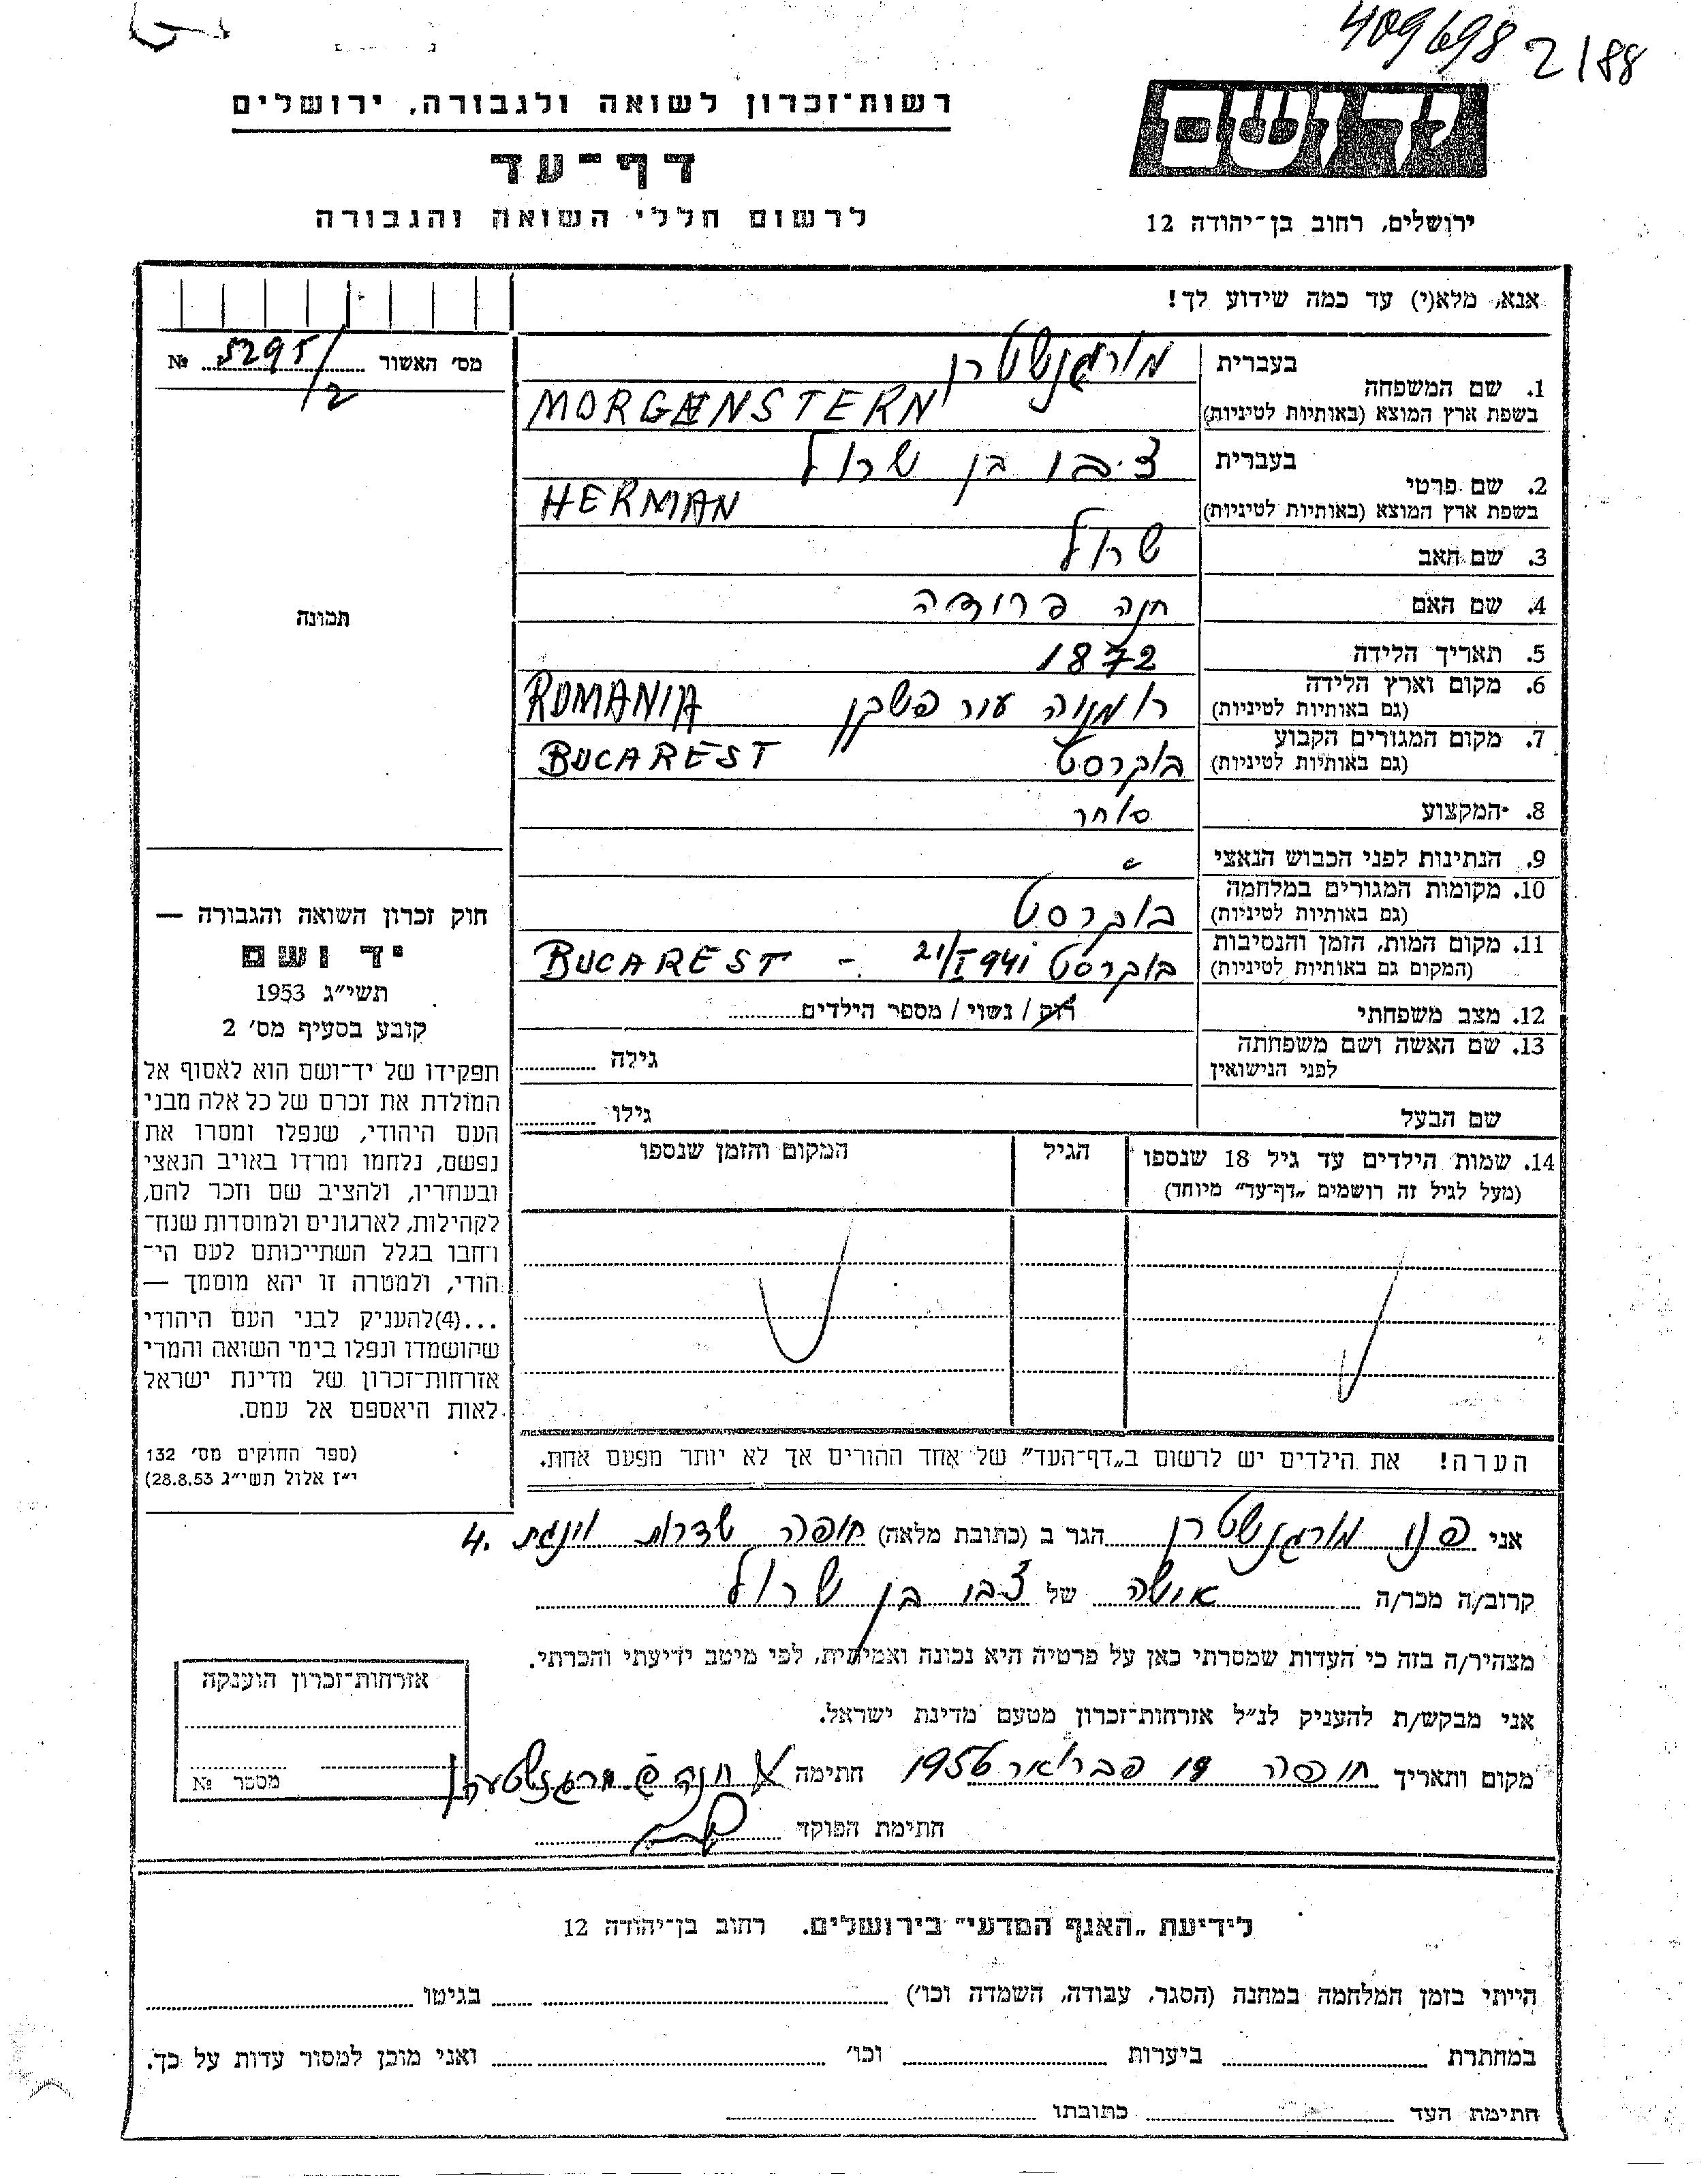 409698 2/88
יד ושם
רשות־זכרון לשואה ולגבורה, ירושלים
דף־עד
לרשום חללי השואה והגבורה
ירושלים, רחוב בן־יהודה 12
אנא, מלא(י) עד כמה שידוע לך!
מס׳ האשור № 5295/2
תמונה
1. שם המשפחה בעברית מורגנשטרן
בשפת ארץ המוצא (באותיות לטיניות) MORGENSTERN
2. שם פרטי בעברית צבי בן שרול
בשפת ארץ המוצא (באותיות לטיניות) HERMAN
3. שם האב שרול
4. שם האם חנה פרוידה
5. תאריך הלידה 1872
6. מקום וארץ הלידה (גם באותיות לטיניות) רומניה עיר פשקן ROMANIA
7. מקום המגורים הקבוע (גם באותיות לטיניות) בוקרסט BUCAREST
8. המקצוע סוחר
9. הנתינות לפני הכבוש הנאצי
10. מקומות המגורים במלחמה (גם באותיות לטיניות) בוקרסט
11. מקום המות, הזמן והנסיבות (המקום גם באותיות לטיניות) בוקרסט 21/I 941 - BUCAREST
12. מצב משפחתי רוק / נשוי / מספר הילדים
13. שם האשה ושם משפחתה לפני הנישואין גילה
שם הבעל גילו
14. שמות הילדים עד גיל 18 שנספו הגיל המקום והזמן שנספו
(מעל לגיל זה רושמים „דף־עד” מיוחד)
הערה! את הילדים יש לרשום ב„דף־העד” של אחד ההורים אך לא יותר מפעם אחת.
חוק זכרון השואה והגבורה —
יד ושם
תשי״ג 1953
קובע בסעיף מס׳ 2
תפקידו של יד־ושם הוא לאסוף אל
המולדת את זכרם של כל אלה מבני
העם היהודי, שנפלו ומסרו את
נפשם, נלחמו ומרדו באויב הנאצי
ובעוזריו, ולהציב שם וזכר להם,
לקהילות, לארגונים ולמוסדות שנח־
רחבו בגלל השתייכותם לעם הי־
הודי, ולמטרה זו יהא מוסמך —
...(4)להעניק לבני העם היהודי
שהושמדו ונפלו בימי השואה והמרי
אזרחות־זכרון של מדינת ישראל
לאות היאספם אל עמם.
(ספר החוקים מס׳ 132
י״ז אלול תשי״ג 28.8.53)
אני פני מורגנשטרן הגר ב (כתובת מלאה) חיפה שדרות וינגת 4.
קרוב/ה מכר/ה אישה של צבי בן שרול
מצהיר/ה בזה כי העדות שמסרתי כאן על פרטיה היא נכונה ואמיתית, לפי מיטב ידיעתי והכרתי.
אני מבקש/ת להעניק לנ״ל אזרחות־זכרון מטעם מדינת ישראל.
מקום ותאריך חיפה 19 פברואר 1956 חתימה
חתימת הפוקד
אזרחות־זכרון הוענקה
מספר №
לידיעת „האגף המדעי” בירושלים. רחוב בן־יהודה 12
הייתי בזמן המלחמה במחנה (הסגר, עבודה, השמדה וכו׳) בגיטו
במחתרת ביערות וכו׳ ואני מוכן למסור עדות על כך.
חתימת העד כתובתו